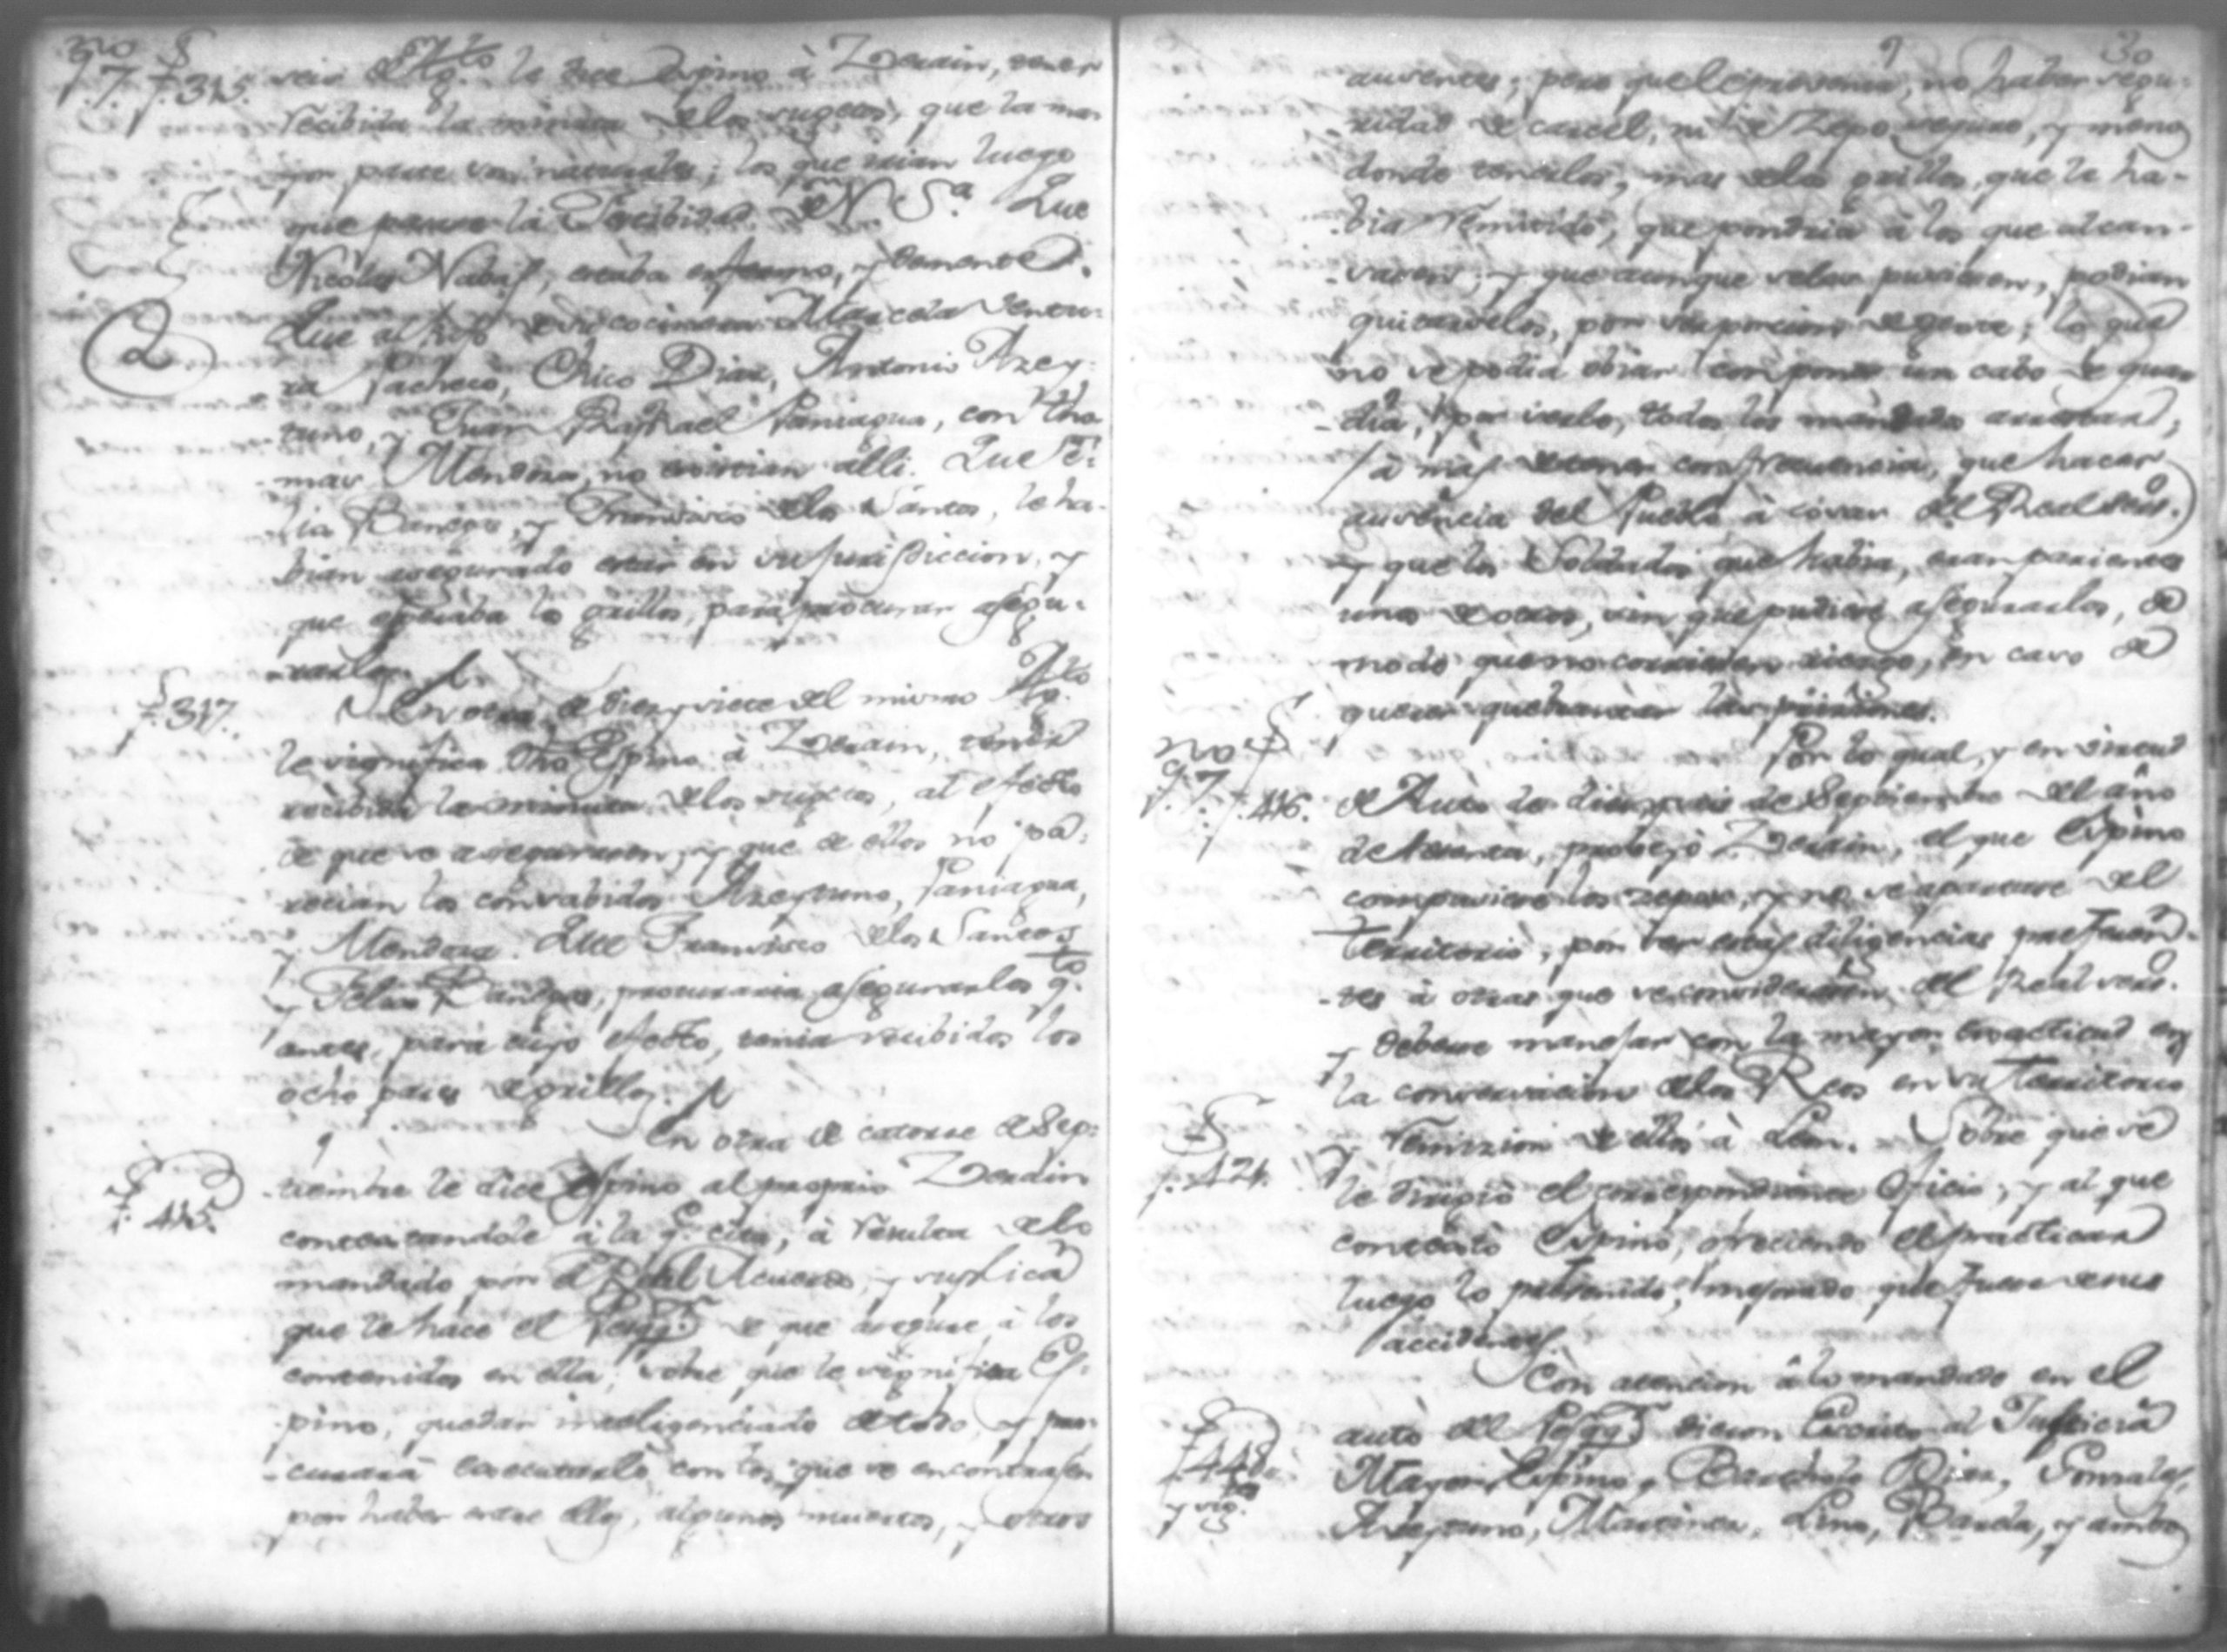 no §
p. 7. f. 315. seis de Ag.to le dice Espino à Zerain, tener
recibida la minuta de los sugetos, que la ma-
yor parte son naturales; los que irian luego
que pasase la Festibidad de N. S.a Que
Nicolas Nabas, estaba enfermo, y demente.
2
Que al hijo de su cocinera Marcela Ventu-
ra Pacheco, Chico Diaz, Antonio Azey-
tuno, y Juan Raphael Paniagua, con Tho-
mas Mendoza, no existian alli. Que Fe-
lis Banegas, y Francisco de los Santos, le ha-
bian asegurado estar en su jurisdiccion, y
que esperaba los grillos, para procurar asegu-
rarlos.
§
f. 317.
En otra de diez y siete del mismo Ag.to
le significa dho Espino à Zerain, tener
recibida la minuta de los sugetos, al efecto
de que se asegurasen, y que de ellos no pa-
recian los consabidos Azeytuno, Paniagua,
y Mendoza. Que Francisco de los Santos
y Felis Banegas, procuraria asegurarlos q.to
antes, para cuyo efecto, tenia recibidos los
ocho pares de grillos.
En otra de catorse de Sep-
§
f. 415.
tiembre le dice Espino al proprio Zerain
contestandole à la q. cita, à resulta de lo
mandado por el Real Acuerdo, y suplica
que le hace el de que asegure à los
contenidos en ella, sobre que le significa Es-
pino, quedar inteligenciado de todo, y pro-
curará executarlo con los que se encontrasen
por haber entre ellos, algunos muertos, y otros
30
ausentes; pero que le prevenia, no haber segu-
ridad de carcel, ni de Zepo seguro, y menos
donde tenerlos, mas de los grillos, que le ha-
bia remitido, que pondria à los que alcan-
-sasen; y que aunque selos pusiesen, podian
quitarselos, por desporcion de gente; lo que
no se podia obiar con poner un cabo de guar
-dia, por serlo, todos los mandados
à mas de tener con frecuencia, que hacer
ausencia del Pueblo à covar el Real
y que los Soldados que habia, eran parientes
unos de otros, sin que pudiese asegurarlos, de
modo que no corriesen riesgo, en caso de
querer quebrantar las priciones.
Por lo qual, y en virtud
no §
p. 7. f. 416.
de Auto de diez y seis de Septiembre del año
de setenta, probeyò Zerain, el que Espino
compusiese los zepos, y no se apartase del
Territorio, por ser estas diligencias preferen-
tes à otras que se considerasen del Real
y deberse manejar con la mayor exactitud en
la conservacion de los Reos en su Territorio
§
f. 424.
y remizion de ellos à Leon. Sobre que se
le dirigió el correspondiente Oficio, y al que
contestò Espino, ofreciendo el practicar
luego lo prevenido, mejorado que fuese de sus
accidentes.
Con atencion à lo mandado en el
§
f. 448.
y sig.tes
auto del dieron Escrito al Justicia
Mayor Espino, Diaz, Gonzales,
Azeytuno, Martinez, Lino, Banda, y ambos